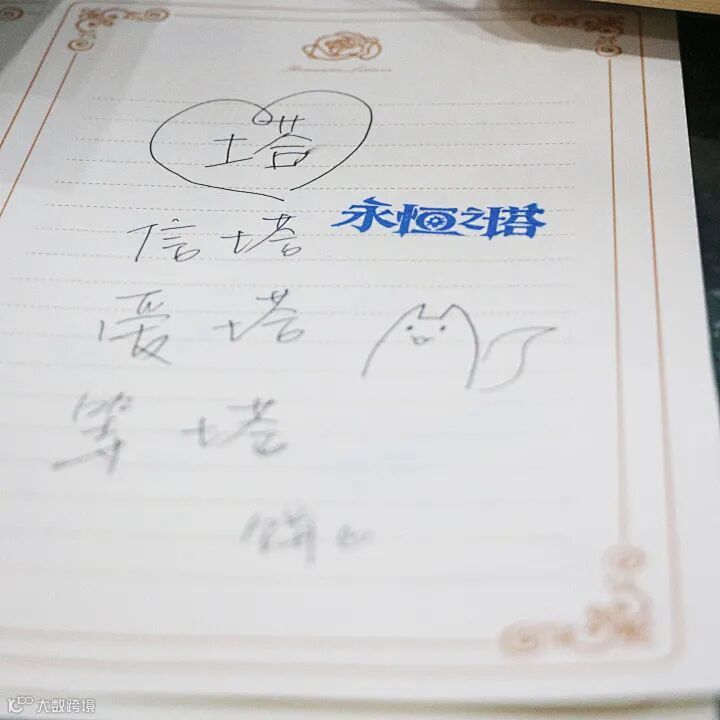 塔
信塔
永恒之塔
爱塔
等塔
大数跨境